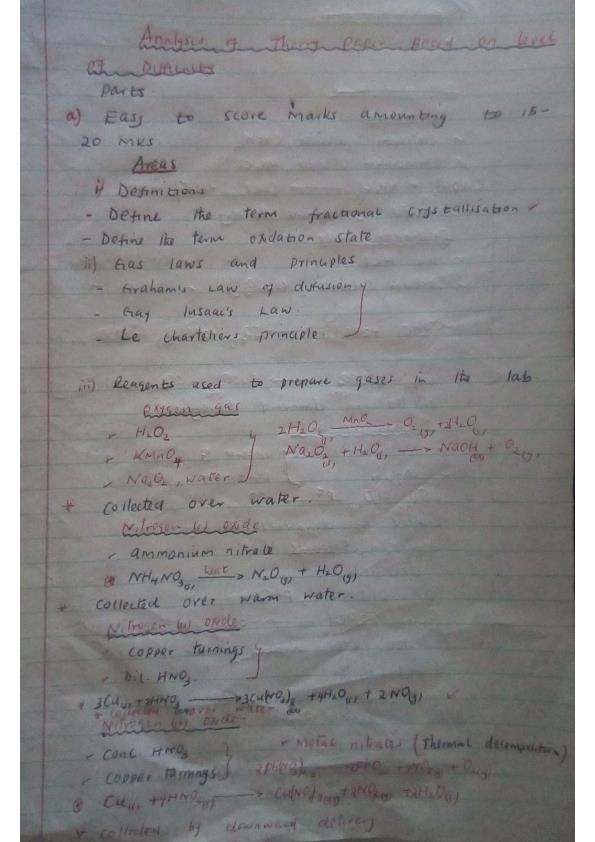 Analysis of Theory Paper Based on level
of Difficulty
Parts
a) Easy to score marks amounting to 15-
20 MKS.
Areas
i) Definitions
- Define the term fractional crystallisation ✓
- Define the term oxidation state
ii) Gas laws and principles
- Graham's Law of diffusion
- Gay lusaac's Law.
- Le charteliers principle.
iii) Reagents used to prepare gases in the lab
oxygen gas
✓ H₂O₂ 2H₂O₂(l) MnO₂→ O₂(g) + 2H₂O(l)
✓ KMnO₄ Na₂O₂(s) + H₂O(l) → NaOH(aq) + O₂(g)
✓ Na₂O₂, water
* Collected over water.
Nitrogen (I) oxide
✓ ammonium nitrate
NH₄NO₃(s) heat→ N₂O(g) + H₂O(g)
* Collected over warm water.
Nitrogen (II) oxide.
✓ copper turnings
✓ Dil. HNO₃
* 3Cu(s) + 8HNO₃ → 3Cu(NO₃)₂(aq) + 4H₂O(l) + 2NO(g) ✓
* Collected over water.
Nitrogen (IV) oxide.
✓ Conc HNO₃ ✓ Metal nitrates (Thermal decomposition)
✓ Copper turnings
Cu(s) + 4HNO₃(l) → Cu(NO₃)₂(aq) + 2NO₂(g) + 2H₂O(l)
* Collected by downward delivery